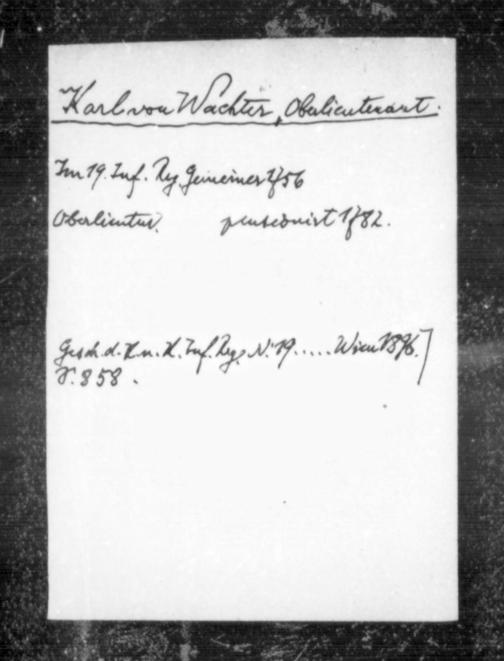 Karl von Wachter, Oberlieutenant.
Im 19. Inf. Reg. Gemeiner 1756
Oberlieutnt. pensionirt 1782.
Gesch. d. K. u. K. Inf. Reg. N. 19..... Wien 1896.]
S. 858.